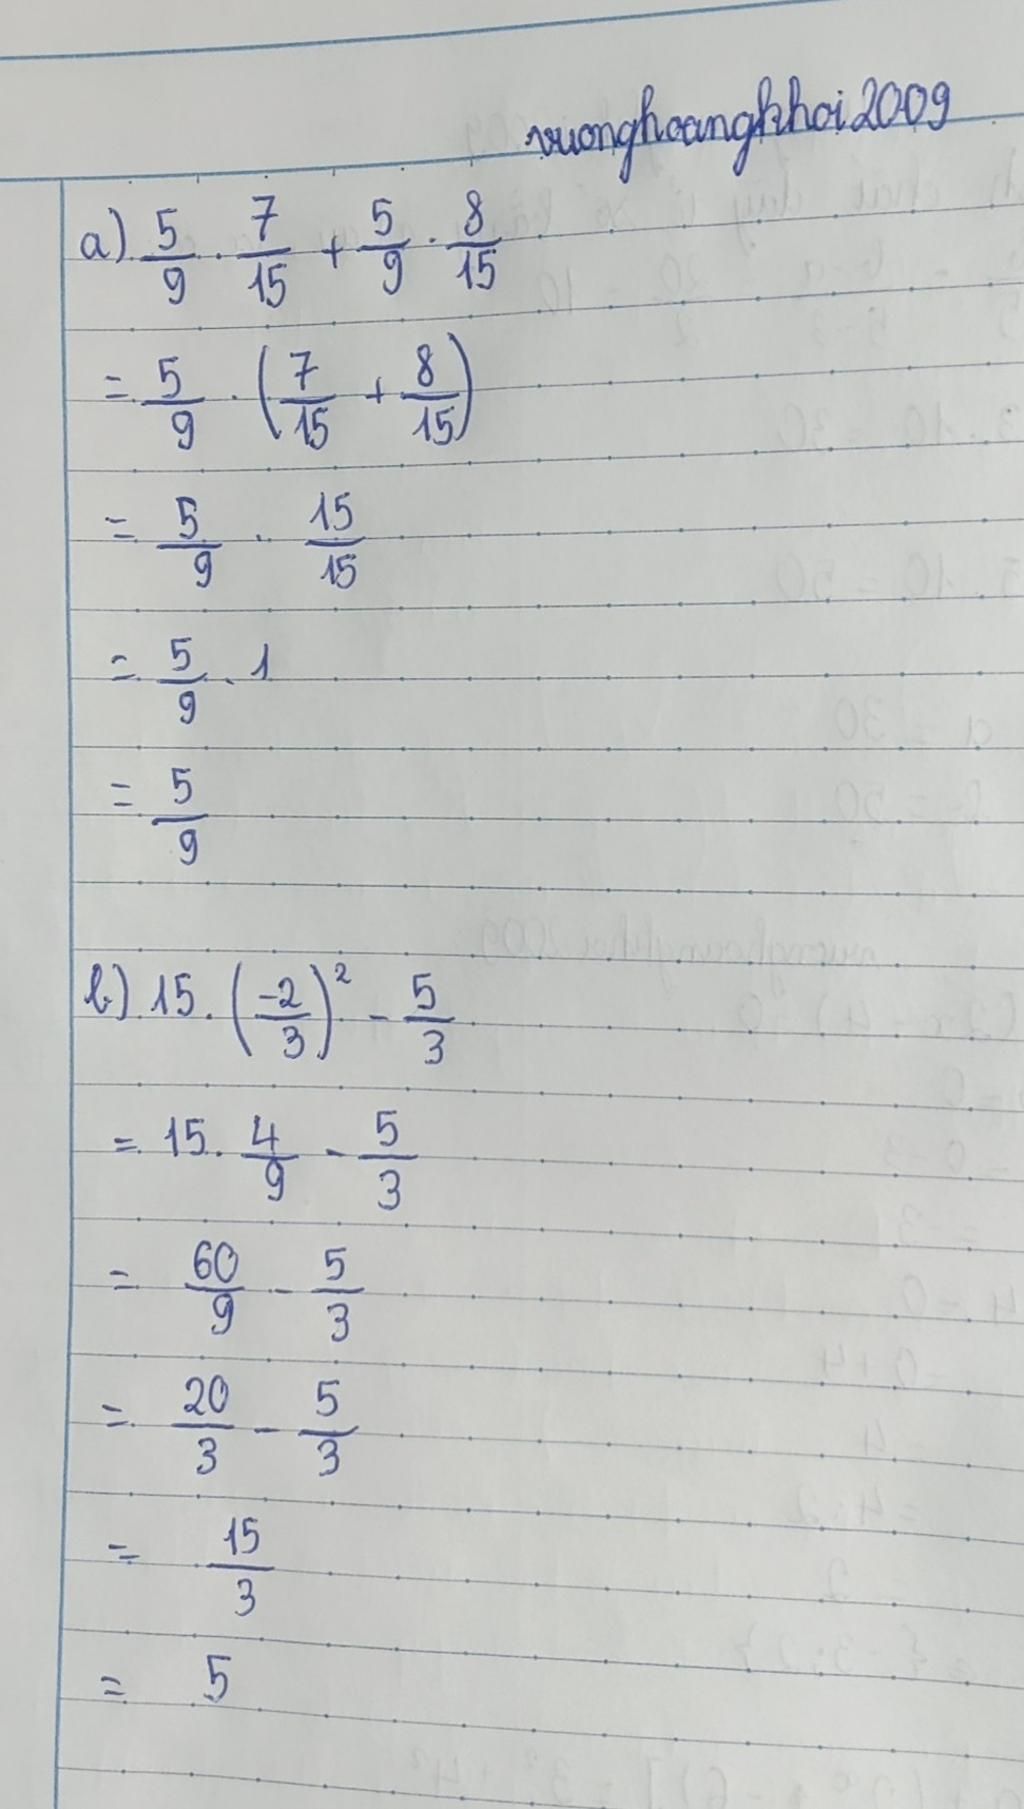 vuonghoangkhoi2009
a) 5/9 . 7/15 + 5/9 . 8/15
= 5/9 . (7/15 + 8/15)
= 5/9 . 15/15
= 5/9 . 1
= 5/9
b) 15 . (-2/3)² - 5/3
= 15 . 4/9 - 5/3
= 60/9 - 5/3
= 20/3 - 5/3
= 15/3
= 5